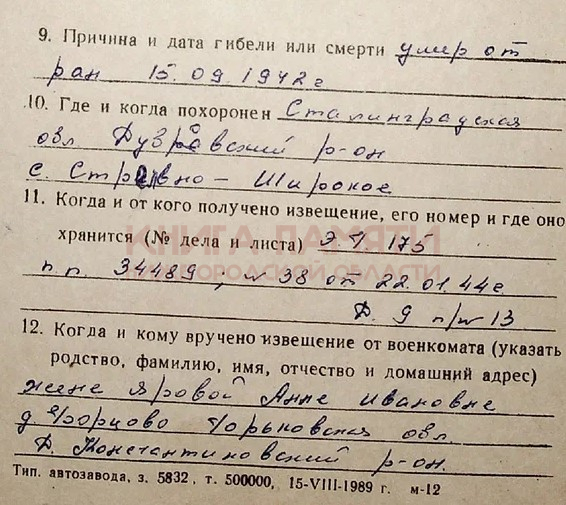 9. Причина и дата гибели или смерти умер от
ран 15.09.1942г
10. Где и когда похоронен Сталинградская
обл Дубовский р-он
с. Стр вно - Широкое
11. Когда и от кого получено извещение, его номер и где оно
хранится (№ дела и листа) ЭЧ 175
п.п. 34489, № 38 от 22.01.44г.
Д. 9 п/№ 13
12. Когда и кому вручено извещение от военкомата (указать
родство, фамилию, имя, отчество и домашний адрес)
жене Яровой Анне Ивановне
д. Горьковская обл.
Д. Константиновский р-он.
Тип. автозавода, з. 5832, т. 500000, 15-VIII-1989 г. м-12
КНИГА ПАМЯТИ
НИЖЕГОРОДСКОЙ ОБЛАСТИ